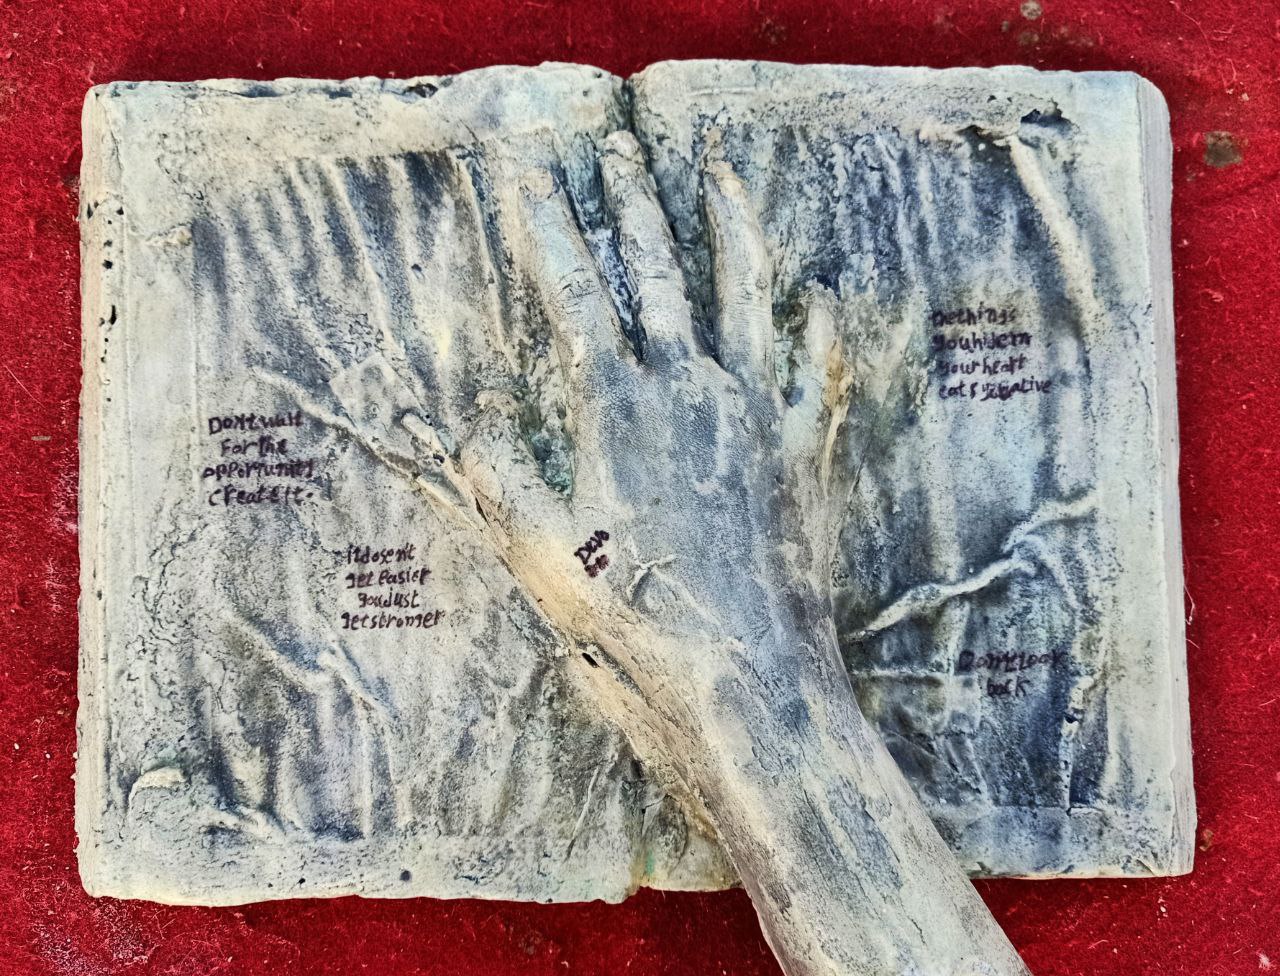 Don't wait
For the
opportunity
create it.
it doesen't
get easier
you just
get stronger
Devo
Dethings
you hidern
your heart
eats
Don't look
back